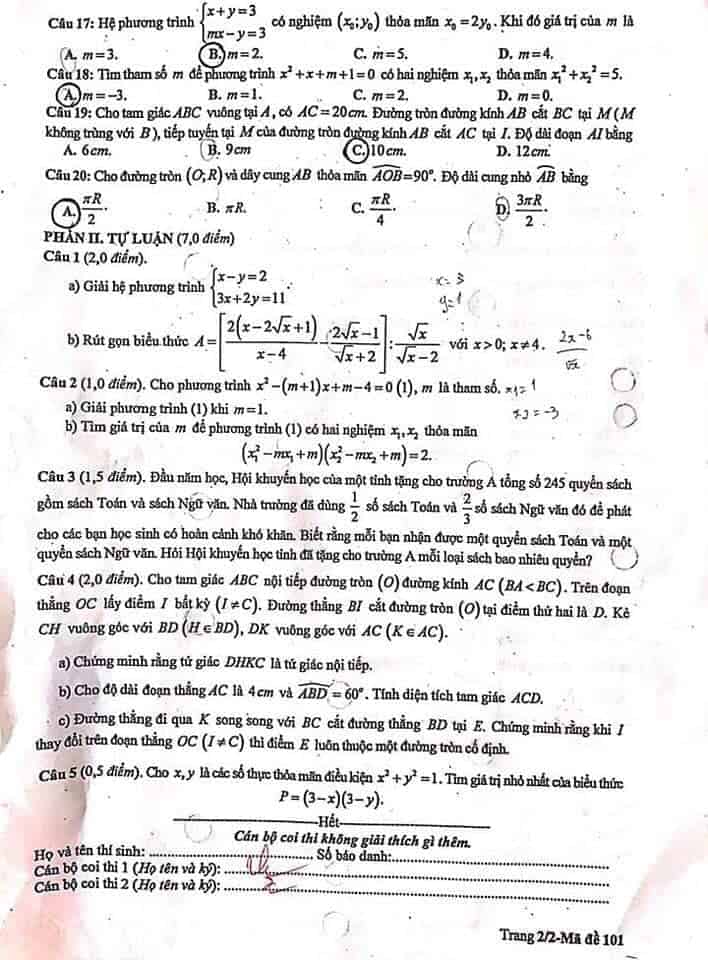 Câu 17: Hệ phương trình {x+y=3 mx−y=3 có nghiệm (x₀;y₀) thỏa mãn x₀=2y₀. Khi đó giá trị của m là
A. m=3. B. m=2. C. m=5. D. m=4.
Câu 18: Tìm tham số m để phương trình x²+x+m+1=0 có hai nghiệm x₁,x₂ thỏa mãn x₁²+x₂²=5.
A. m=−3. B. m=1. C. m=2. D. m=0.
Câu 19: Cho tam giác ABC vuông tại A, có AC=20cm. Đường tròn đường kính AB cắt BC tại M (M
không trùng với B), tiếp tuyến tại M của đường tròn đường kính AB cắt AC tại I. Độ dài đoạn AI bằng
A. 6cm. B. 9cm C. 10cm. D. 12cm.
Câu 20: Cho đường tròn (O;R) và dây cung AB thỏa mãn AOB=90°. Độ dài cung nhỏ AB bằng
A. πR/2. B. πR. C. πR/4. D. 3πR/2.
PHẦN II. TỰ LUẬN (7,0 điểm)
Câu 1 (2,0 điểm).
a) Giải hệ phương trình {x−y=2 3x+2y=11. x=3 y=1
b) Rút gọn biểu thức A=[2(x−2√x+1)/(x−4) − (2√x−1)/(√x+2)]:√x/(√x−2) với x>0; x≠4. 2x−6/√x
Câu 2 (1,0 điểm). Cho phương trình x²−(m+1)x+m−4=0 (1), m là tham số. x₁=1
a) Giải phương trình (1) khi m=1. x₂=−3
b) Tìm giá trị của m để phương trình (1) có hai nghiệm x₁,x₂ thỏa mãn
(x₁²−mx₁+m)(x₂²−mx₂+m)=2.
Câu 3 (1,5 điểm). Đầu năm học, Hội khuyến học của một tỉnh tặng cho trường A tổng số 245 quyển sách
gồm sách Toán và sách Ngữ văn. Nhà trường đã dùng 1/2 số sách Toán và 2/3 số sách Ngữ văn đó để phát
cho các bạn học sinh có hoàn cảnh khó khăn. Biết rằng mỗi bạn nhận được một quyển sách Toán và một
quyển sách Ngữ văn. Hỏi Hội khuyến học tỉnh đã tặng cho trường A mỗi loại sách bao nhiêu quyển?
Câu 4 (2,0 điểm). Cho tam giác ABC nội tiếp đường tròn (O) đường kính AC (BA<BC). Trên đoạn
thẳng OC lấy điểm I bất kỳ (I≠C). Đường thẳng BI cắt đường tròn (O) tại điểm thứ hai là D. Kẻ
CH vuông góc với BD (H∈BD), DK vuông góc với AC (K∈AC).
a) Chứng minh rằng tứ giác DHKC là tứ giác nội tiếp.
b) Cho độ dài đoạn thẳng AC là 4cm và ABD=60°. Tính diện tích tam giác ACD.
c) Đường thẳng đi qua K song song với BC cắt đường thẳng BD tại E. Chứng minh rằng khi I
thay đổi trên đoạn thẳng OC (I≠C) thì điểm E luôn thuộc một đường tròn cố định.
Câu 5 (0,5 điểm). Cho x,y là các số thực thỏa mãn điều kiện x²+y²=1. Tìm giá trị nhỏ nhất của biểu thức
P=(3−x)(3−y).
Hết
Cán bộ coi thi không giải thích gì thêm.
Họ và tên thí sinh: Số báo danh:
Cán bộ coi thi 1 (Họ tên và ký):
Cán bộ coi thi 2 (Họ tên và ký):
Trang 2/2-Mã đề 101